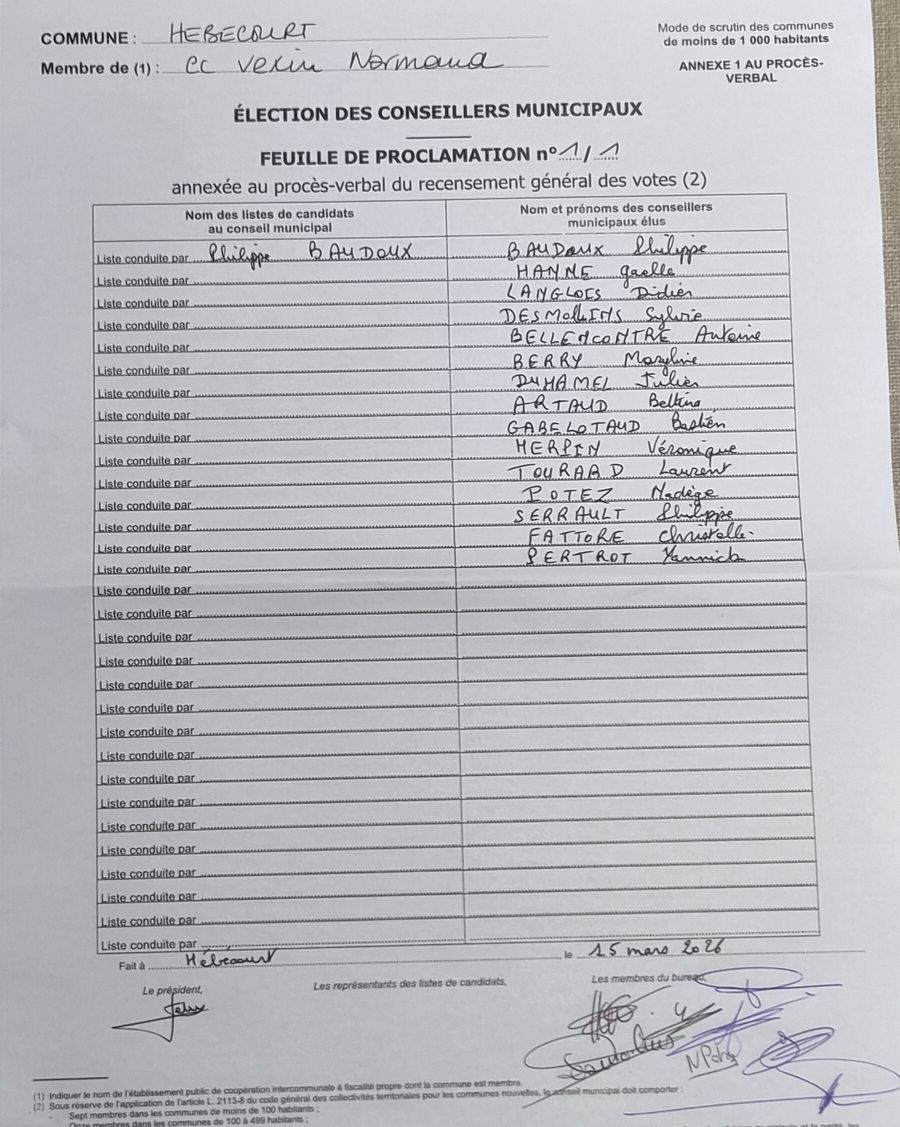 COMMUNE : HEBECOURT
Mode de scrutin des communes
de moins de 1 000 habitants
Membre de (1) : CC Vexin Normand
ANNEXE 1 AU PROCÈS-
VERBAL
ÉLECTION DES CONSEILLERS MUNICIPAUX
FEUILLE DE PROCLAMATION n° 1 / 1
annexée au procès-verbal du recensement général des votes (2)
Nom des listes de candidats
au conseil municipal
Nom et prénoms des conseillers
municipaux élus
Liste conduite par Philippe BAUDOUX BAUDOUX Philippe
Liste conduite par HANNE Gaelle
Liste conduite par LANGLOIS Didier
Liste conduite par DESMOLLINS Sylvie
Liste conduite par BELLENCONTRE Antoine
Liste conduite par BERRY Maryline
Liste conduite par DUHAMEL Julien
Liste conduite par ARTAUD Bettina
Liste conduite par GABELOTAUD Bastien
Liste conduite par HERPIN Véronique
Liste conduite par TOURARD Laurent
Liste conduite par POTEZ Nadège
Liste conduite par SERRAULT Philippe
Liste conduite par FATTORE Christelle
Liste conduite par PERTROT Yannick
Liste conduite par
Liste conduite par
Liste conduite par
Liste conduite par
Liste conduite par
Liste conduite par
Liste conduite par
Liste conduite par
Liste conduite par
Liste conduite par
Liste conduite par
Liste conduite par
Liste conduite par
Liste conduite par
Liste conduite par
Liste conduite par
Fait à Hébecourt le 15 mars 2026
Le président,
Les représentants des listes de candidats,
Les membres du bureau,
(1) Indiquer le nom de l'établissement public de coopération intercommunale à fiscalité propre dont la commune est membre.
(2) Sous réserve de l'application de l'article L. 2113-8 du code général des collectivités territoriales pour les communes nouvelles, le conseil municipal doit comporter :
- Sept membres dans les communes de moins de 100 habitants ;
Onze membres dans les communes de 100 à 499 habitants ;